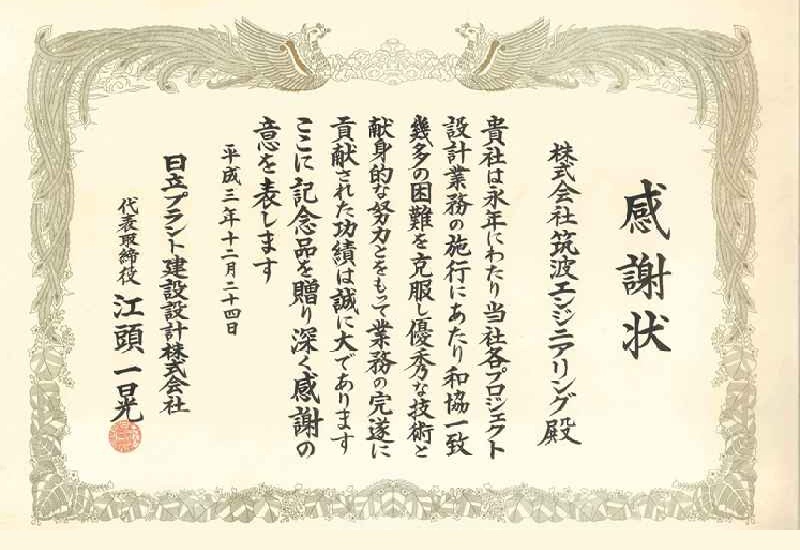 感謝状
株式会社筑波エンジニアリング殿
貴社は永年にわたり当社各プロジェクト
設計業務の施行にあたり和協一致
幾多の困難を克服し優秀な技術と
献身的な努力とをもって業務の完遂に
貢献された功績は誠に大であります
ここに記念品を贈り深く感謝の
意を表します
平成三年十二月二十四日
日立プラント建設設計株式会社
代表取締役 江頭一晃